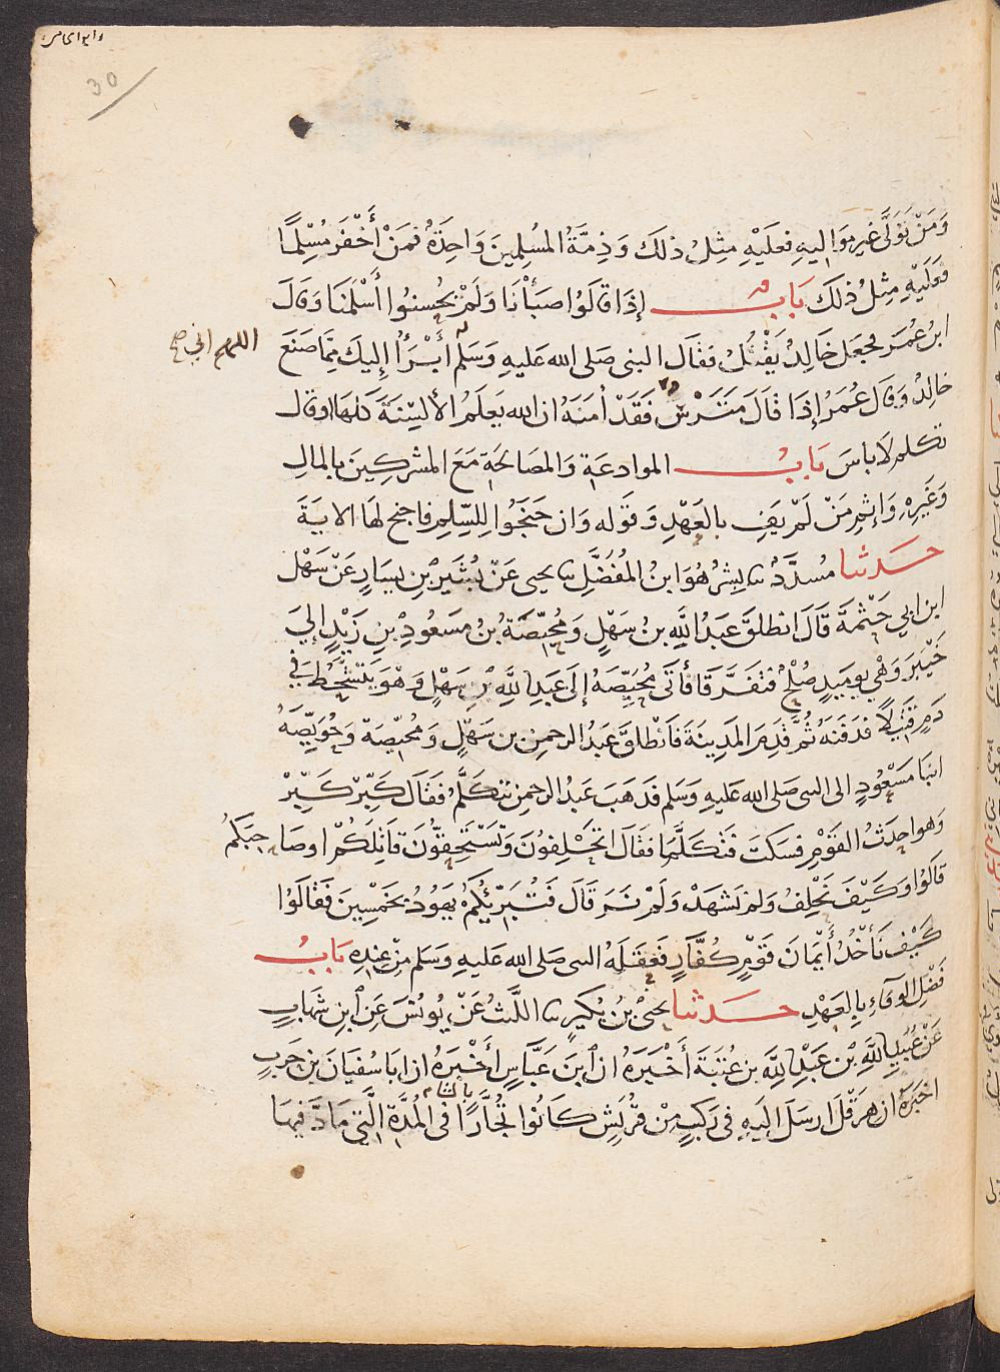 وابو ابحامى
30
وَمَنْ تَوَلَّى غير مَوَاليهِ فعلَيْهِ مِثلُ ذلكَ وَذِمَّةُ المُسْلِمِينَ وَاحِدَةٌ فمَنْ أَخْفَرَ مُسْلِمًا
فعَلَيْهِ مِثْلُ ذلكَ بَابٌ إذَا قَالوُا صَبَأْنَا وَلَمْ يُحْسِنوُا أَسْلَمْنَا وَقَالَ
ابنُ عُمَرَ فجعَلَ خَالِدٌ يَقْتُلُ فقَالَ النبى صَلى الله عَليهِ وَسَلم أَبْرَأُ إِليكَ مِمَّا صَنَعَ
اللهم انى صح
خالِدٌ وَقَالَ عُمَرُ إِذَا قَالَ مَتَرْسْ فَقَدْ اٰمَنَهُ ان الله يَعلَمُ الألْسِنَةَ كُلهَا او قال
تكلم لَا باسَ بَابُ الموادعَةِ وَالمصَالحَةِ مَعَ المشركِينَ بالمالِ
وَغَيرِهِ وَإِثمِ مَنْ لَمْ يَفِ بالعَهْدِ وَقَوله وَان جَنَحُوا لِلسِّلِم فاجنح لهَا الايَةَ
حَدثنا مُسدَّدٌ ثنا بِشرٌ هُوَ ابنُ المُفَضَّلِ ثنا يحيى عَنْ بُشَيرِ بْنِ يسَارٍ عَنْ سَهْل
ابن ابي حَثْمَةَ قَالَ انطلقَ عَبدُ اللَّهِ بنُ سَهْلٍ وَمُحَيِّصَةُ بنُ مَسعُودِ بْنِ زَيْدٍ إلىَ
خَيْبَرَ وَهْي يوميذٍ صُلْحٌ فتفَرَّقَا فأتَى مُحَيِّصَةُ إِلَى عَبدِ اللَّهِ بْنِ سَهْلٍ وَهْوَ يَتَشَحَّطُ فِي
دَمٍ قَتِيلًا فدَفنَهُ ثُمَّ قدِمَ المَدِينَةَ فَانْطلَقَ عَبدُ الرحمن بن سَهْلٍ وَمُحَيِّصَة وَحُوَيِّصَةُ
ابنَا مَسْعُودٍ الى النبى صَلى الله عَليهِ وَسَلم فذهَبَ عَبدُ الرحمن يتَكَلَّمُ فَقَالَ كَبِّرْ كَبِّرْ
وَهو احدَثُ القَوْمِ فسَكتَ فَتكَلَّمَا فقَالَ اتحْلِفوُنَ وَتَسْتَحِقُّونَ قاتِلَكُمْ او صَاحِبَكُم
قالوُا وَكَيْفَ نَحْلِفُ وَلم نَشهَدْ وَلَمْ نَرَ قَالَ فَتُبَرِّئُكُمْ يَهوُدُ بخَمْسِينَ فَقَالوُا
كَيْفَ نَأخُذُ أَيْمَانَ قَوْمٍ كُفَّارٍ فَعَقَلَهُ النبى صَلى الله عَليهِ وَسَلم مِنْ عِندِهِ بَابُ
فَضْلِ الوفَاءِ بِالعَهْدِ حَدثنا يحيَى بْنُ بُكَيرٍ ثنا اللَّيثُ عَنْ يُونسَ عَنِ ابْنِ شهَابٍ
عَنْ عُبَيدِ اللَّهِ بْن عَبْدِ اللَّهِ بنِ عُتبَةَ أَخْبَرَهُ ان ابْنَ عَبَّاسٍ أَخْبَرَهُ ان ابَا سُفيَانَ بن حَربٍ
اخبَرَهُ ان هِرَقْلَ ارسَلَ اليَهِ فى رَكبٍ مِنْ قُرَيْشٍ كَانُوا تُجَّارًا بالشام فى المُدَّةِ الَّتِي مَادَّ فِيهَا